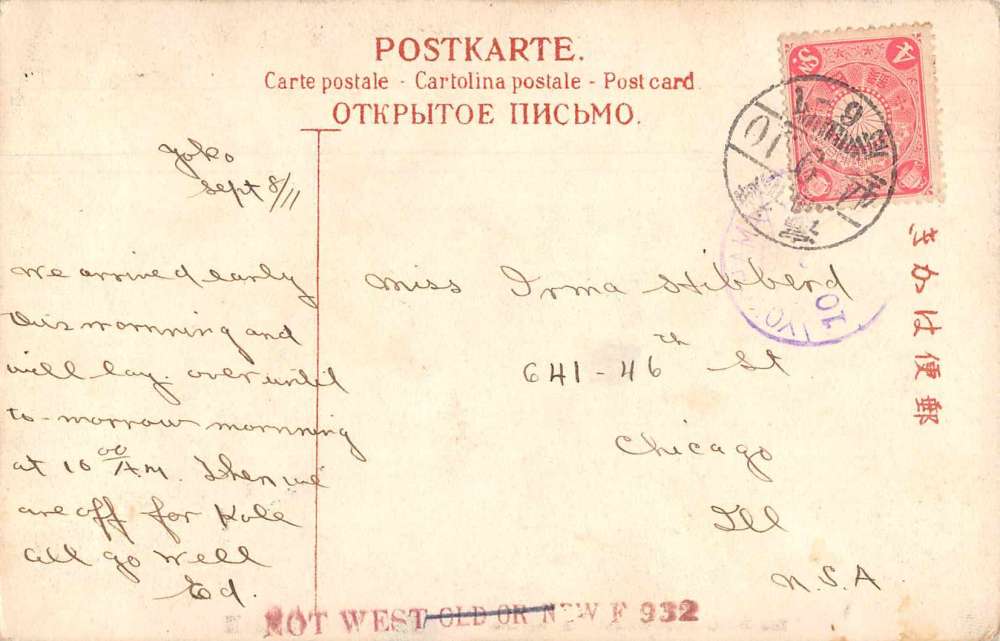 POSTKARTE.
Carte postale - Cartolina postale - Post card
ОТКРЫТОЕ ПИСЬМО.
Yoko
Sept 8/11
We arrived early
this mornning and
will lay over until
to-morrow mornning
at 10 00 AM. Then we
are off for Kobe
all go well
Ed.
Miss Irma Hibberd
641-46th St
Chicago
Ill
U.S.A
きかは便郵
10
NOT WEST OLD OR NEW F 932